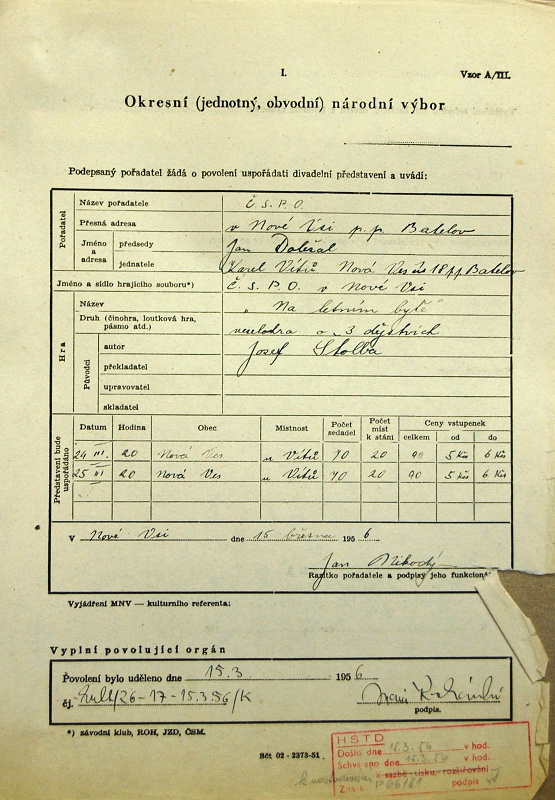 I.
Vzor A/III.
Okresní (jednotný, obvodní) národní výbor
Podepsaný pořadatel žádá o povolení uspořádati divadelní představení a uvádí:
Pořadatel
Název pořadatele Č. S. P. O.
Přesná adresa v Nové Vsi p. p. Batelov
Jméno a adresa
předsedy Jan Doležal
jednatele Karel Vítů Nová Ves čís 18 pp Batelov
Jméno a sídlo hrajícího souboru*) Č. S. P. O. v Nové Vsi
Hra
Název „Na letním bytě“
Druh (činohra, loutková hra, pásmo atd.) veselohra o 3 dějstvích
Původci
autor Josef Štolba
překladatel
upravovatel
skladatel
Představení bude uspořádáno
Datum Hodina Obec Místnost Počet sedadel Počet míst k stání Ceny vstupenek
celkem od do
24 III. 20 Nová Ves u Vítů 70 20 90 5 Kčs 6 Kčs
25 III 20 Nová Ves u Vítů 70 20 90 5 Kčs 6 Kčs
V Nové Vsi dne 15 března 195 6
Jan Nikodým
Razítko pořadatele a podpisy jeho funkcion
Vyjádření MNV — kulturního referenta:
Vyplní povolující orgán
Povolení bylo uděleno dne 15.3. 195 6
čj. kult/26-17-15.3.56/K
podpis.
*) závodní klub, ROH, JZD, ČSM.
Sčt 02 - 2373-51
HSTD
Došlo dne 16.3.56 v hod.
Schváleno dne v hod.
k sazbě - tisku, rozšiřování
podpis